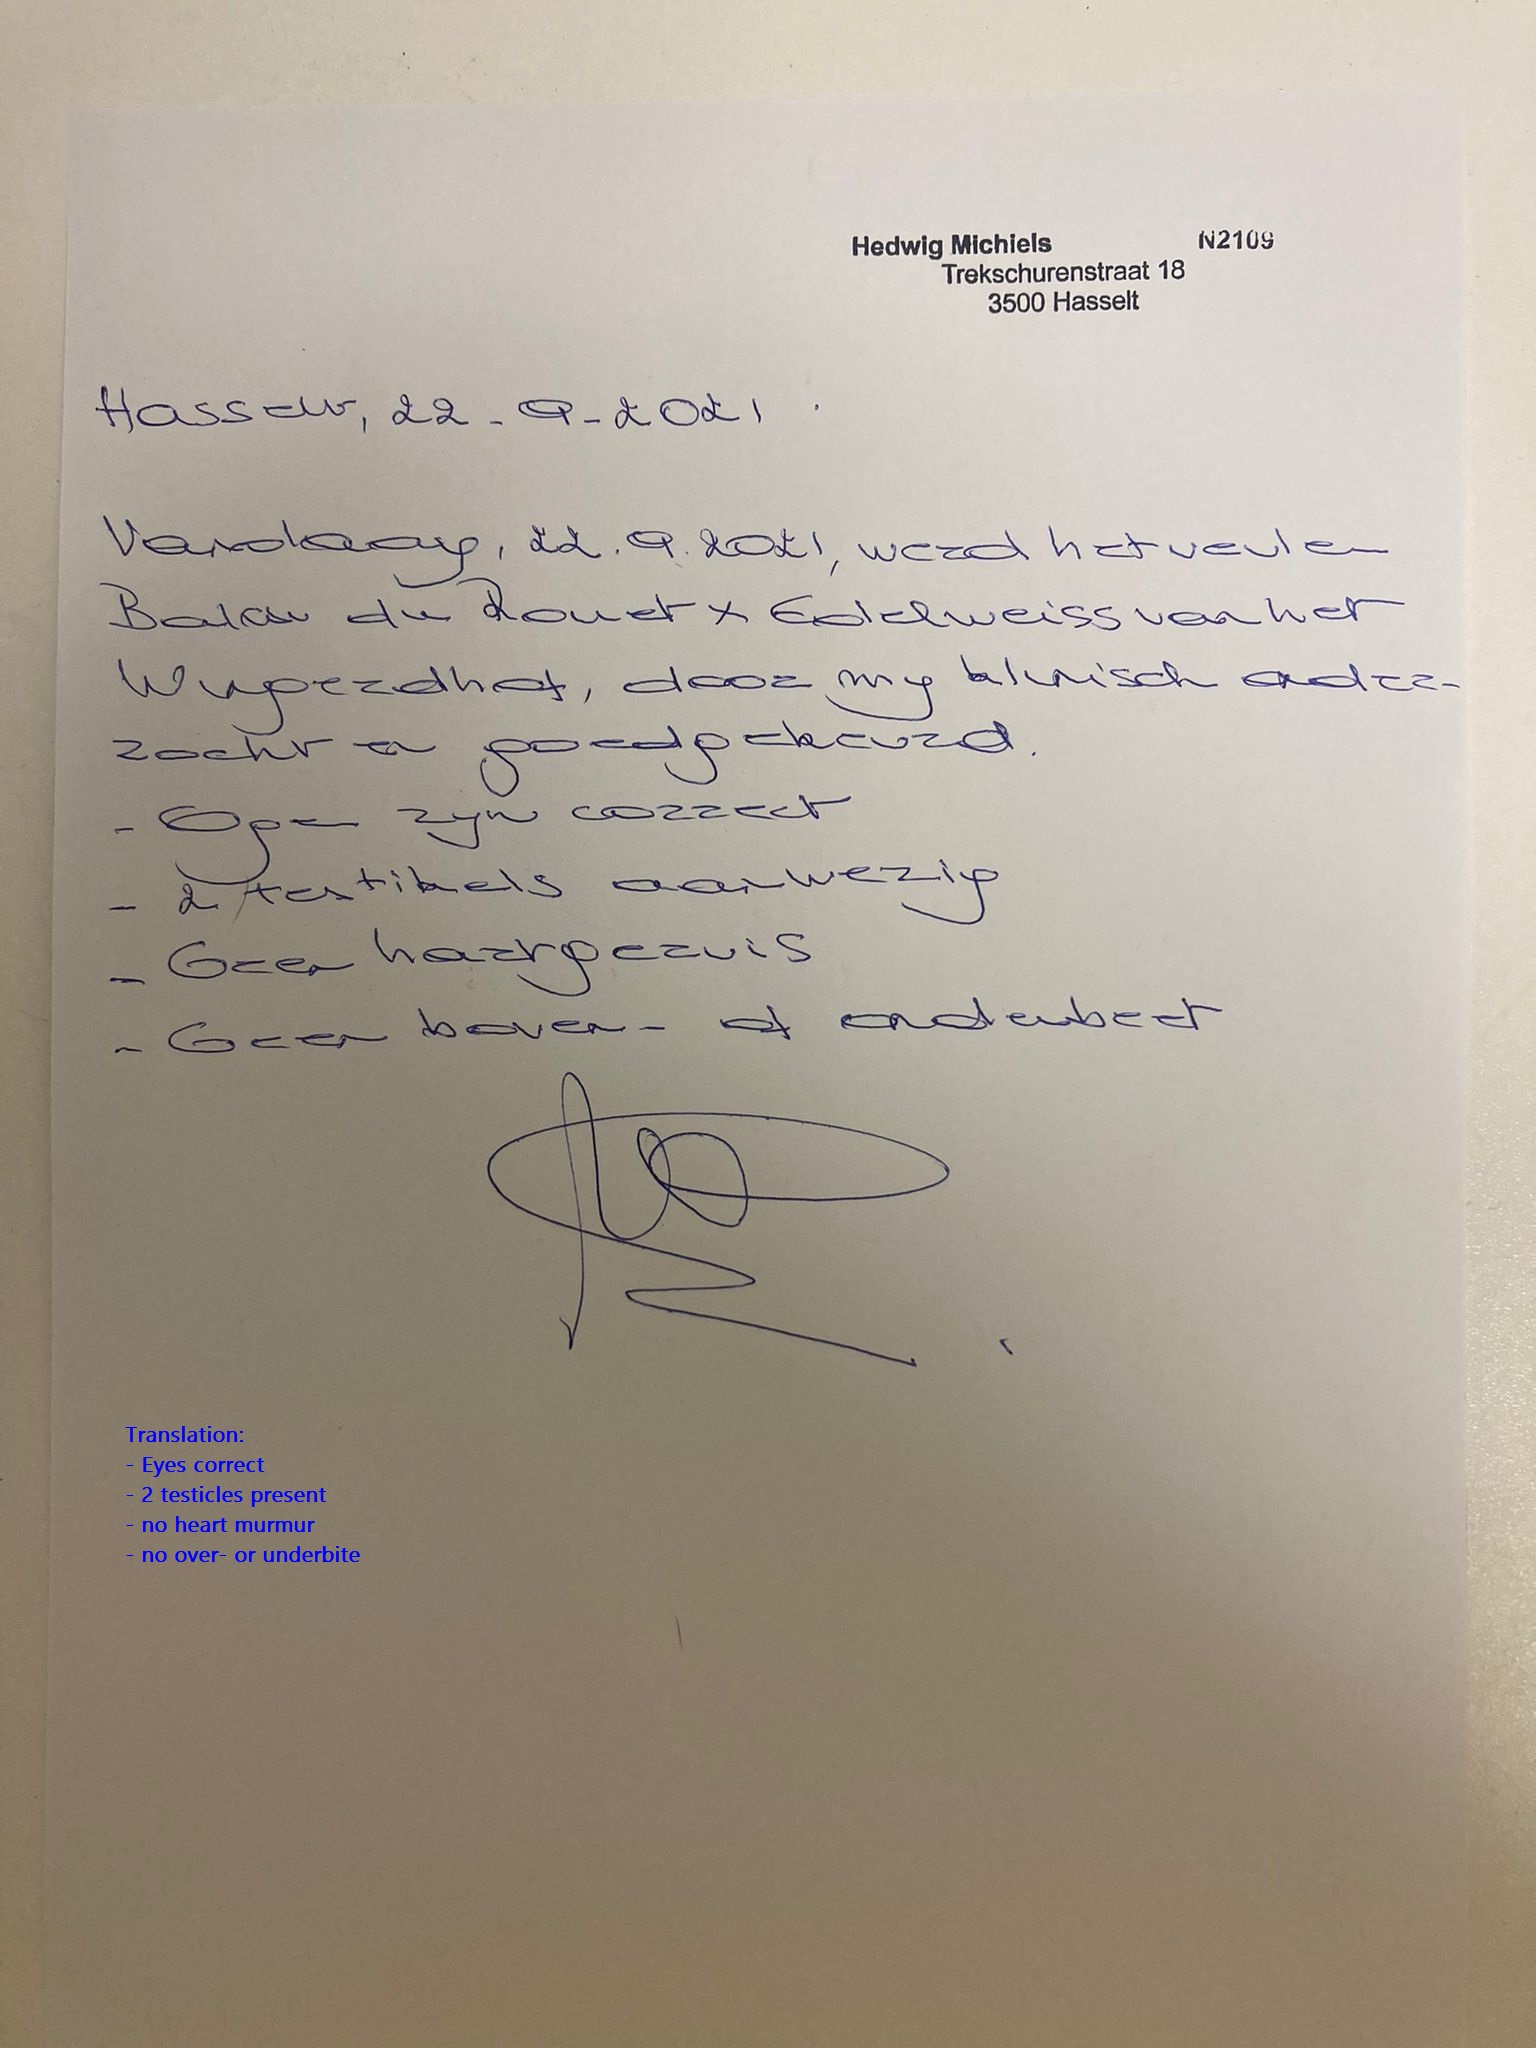 Hedwig Michiels N2109
Trekschurenstraat 18
3500 Hasselt
Hasselt, 22-9-2021
Vandaag, 22.9.2021, werd het veulen
du Rouet x Edelweiss van het
door my klinisch onder-
zocht en goedgekeurd.
- Ogen zyn correct
- 2 testikels aanwezig
- Geen hartgeruis
- Geen boven- of onderbeet
Translation:
- Eyes correct
- 2 testicles present
- no heart murmur
- no over- or underbite